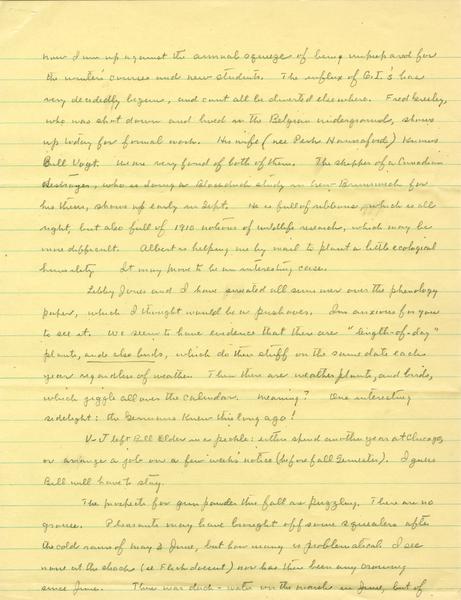 now I run up against the annual squeeze of being unprepared for
the winter's courses and new students. The influx of G.I.'s has
very decidedly begun, and cant all be diverted elsewhere. Fred Greeley,
who was shot down and lived in the Belgian underground, shows
up today for formal work. His wife (nee Perk Hannaford) knows
Bill Vogt. We are very fond of both of them. The skipper of a Canadian
destroyer, who is doing a Woodcock study in New Brunswick for
his thesis, shows up early in Sept. He is full of ribbons, which is all
right, but also full of 1910 notions of wildlife research, which may be
more difficult. Albert is helping me by mail to plant a little ecological
humility. It may prove to be an interesting case.
Libby Jones and I have sweated all summer over the phenology
paper, which I thought would be a pushover. I'm anxious for you
to see it. We seem to have evidence that there are "length-of-day"
plants, and also birds, which do their stuff on the same date each
year regardless of weather. Then there are weather plants, and birds,
which giggle all over the calendar. Meaning? One interesting
sidelight: the Germans knew this long ago!
V-J left Bill Elder in a people: either spend another year at Chicago,
or arrange a job on a few week's notice (before fall Semester). I guess
Bill will have to stay.
The prospects for gun powder this fall are puzzling. There are no
grouse. Pheasants may have brought off some squealers after
the cold rains of May & June, but how many is problematical. I see
none at the shack (se Flick doesent) nor has there been any crowing
since June. There was duck-water on the marsh in June, but of